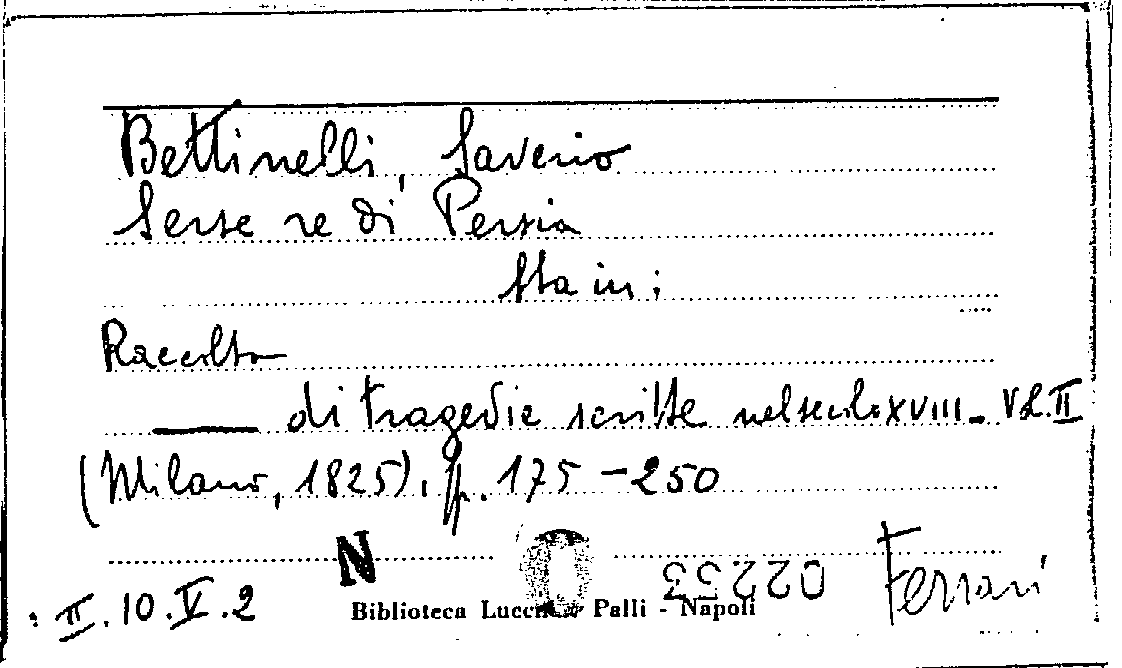 Bettinelli, Saverio
Serse re di Persia
Sta in:
Raccolta
di tragedie scritte nel secolo XVIII - Vol. II
(Milano, 1825), pp. 175-250
N 0 02253 Ferrari
II.10.V.2
Biblioteca Lucchesi Palli - Napoli